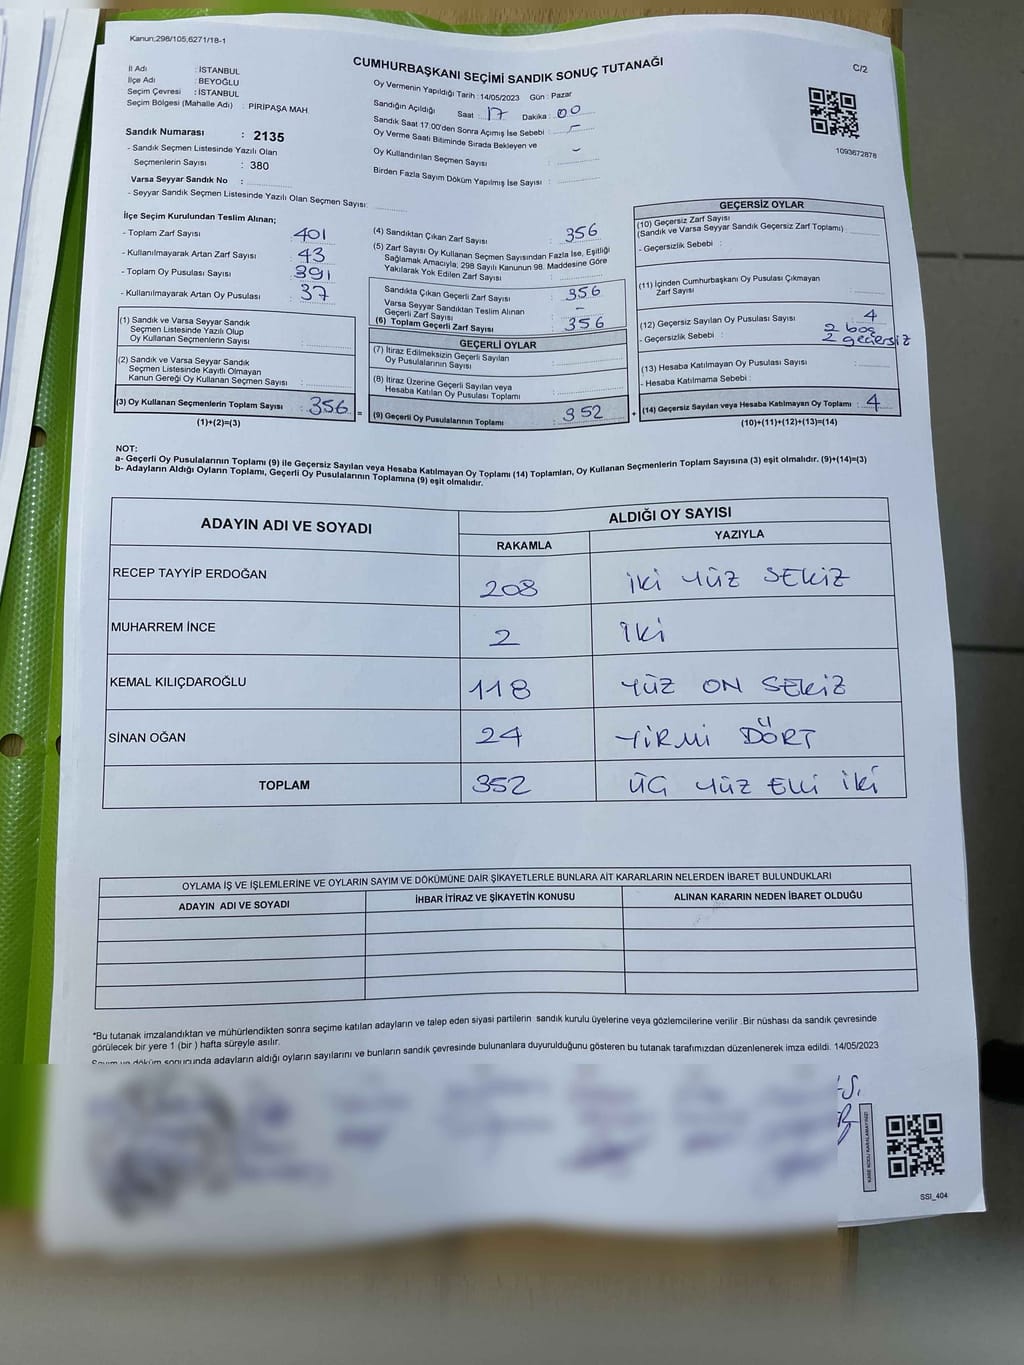 Kanun;298/105,6271/18-1
CUMHURBAŞKANI SEÇİMİ SANDIK SONUÇ TUTANAĞI
C/2
İl Adı : İSTANBUL
İlçe Adı : BEYOĞLU
Seçim Çevresi : İSTANBUL
Seçim Bölgesi (Mahalle Adı) : PİRİPAŞA MAH.
Sandık Numarası : 2135
- Sandık Seçmen Listesinde Yazılı Olan
Seçmenlerin Sayısı : 380
Varsa Seyyar Sandık No :
- Seyyar Sandık Seçmen Listesinde Yazılı Olan Seçmen Sayısı:
Oy Vermenin Yapıldığı Tarih : 14/05/2023 Gün : Pazar
Sandığın Açıldığı Saat : 17 Dakika : 00
Sandık Saat 17:00'den Sonra Açımış İse Sebebi : -
Oy Verme Saati Bitiminde Sırada Bekleyen ve
Oy Kullandırılan Seçmen Sayısı : -
Birden Fazla Sayım Döküm Yapılmış İse Sayısı :
1093672878
İlçe Seçim Kurulundan Teslim Alınan;
- Toplam Zarf Sayısı : 401
- Kullanılmayarak Artan Zarf Sayısı : 43
- Toplam Oy Pusulası Sayısı : 391
- Kullanılmayarak Artan Oy Pusulası : 37
(1) Sandık ve Varsa Seyyar Sandık
Seçmen Listesinde Yazılı Olup
Oy Kullanan Seçmenlerin Sayısı :
(2) Sandık ve Varsa Seyyar Sandık
Seçmen Listesinde Kayıtlı Olmayan
Kanun Gereği Oy Kullanan Seçmen Sayısı :
(3) Oy Kullanan Seçmenlerin Toplam Sayısı : 356 =
(1)+(2)=(3)
(4) Sandıktan Çıkan Zarf Sayısı : 356
(5) Zarf Sayısı Oy Kullanan Seçmen Sayısından Fazla İse, Eşitliği
Sağlamak Amacıyla; 298 Sayılı Kanunun 98. Maddesine Göre
Yakılarak Yok Edilen Zarf Sayısı :
Sandıkta Çıkan Geçerli Zarf Sayısı : 356
Varsa Seyyar Sandıktan Teslim Alınan
Geçerli Zarf Sayısı : -
(6) Toplam Geçerli Zarf Sayısı : 356
GEÇERLİ OYLAR
(7) İtiraz Edilmeksizin Geçerli Sayılan
Oy Pusulalarının Sayısı :
(8) İtiraz Üzerine Geçerli Sayılan veya
Hesaba Katılan Oy Pusulası Toplamı :
(9) Geçerli Oy Pusulalarının Toplamı : 352 +
GEÇERSİZ OYLAR
(10) Geçersiz Zarf Sayısı
(Sandık ve Varsa Seyyar Sandık Geçersiz Zarf Toplamı)
- Geçersizlik Sebebi :
(11) İçinden Cumhurbaşkanı Oy Pusulası Çıkmayan
Zarf Sayısı :
(12) Geçersiz Sayılan Oy Pusulası Sayısı : 4
- Geçersizlik Sebebi : 2 boş
2 geçersiz
(13) Hesaba Katılmayan Oy Pusulası Sayısı :
- Hesaba Katılmama Sebebi :
(14) Geçersiz Sayılan veya Hesaba Katılmayan Oy Toplamı : 4
(10)+(11)+(12)+(13)=(14)
NOT:
a- Geçerli Oy Pusulalarının Toplamı (9) ile Geçersiz Sayılan veya Hesaba Katılmayan Oy Toplamı (14) Toplamları, Oy Kullanan Seçmenlerin Toplam Sayısına (3) eşit olmalıdır. (9)+(14)=(3)
b- Adayların Aldığı Oyların Toplamı, Geçerli Oy Pusulalarının Toplamına (9) eşit olmalıdır.
ADAYIN ADI VE SOYADI ALDIĞI OY SAYISI
RAKAMLA YAZIYLA
RECEP TAYYİP ERDOĞAN 208 İKİ YÜZ SEKİZ
MUHARREM İNCE 2 İKİ
KEMAL KILIÇDAROĞLU 118 YÜZ ON SEKİZ
SİNAN OĞAN 24 YİRMİ DÖRT
TOPLAM 352 ÜÇ YÜZ ELLİ İKİ
OYLAMA İŞ VE İŞLEMLERİNE VE OYLARIN SAYIM VE DÖKÜMÜNE DAİR ŞİKAYETLERLE BUNLARA AİT KARARLARIN NELERDEN İBARET BULUNDUKLARI
ADAYIN ADI VE SOYADI İHBAR İTİRAZ VE ŞİKAYETİN KONUSU ALINAN KARARIN NEDEN İBARET OLDUĞU
*Bu tutanak imzalandıktan ve mühürlendikten sonra seçime katılan adayların ve talep eden siyasi partilerin sandık kurulu üyelerine veya gözlemcilerine verilir .Bir nüshası da sandık çevresinde
görülecek bir yere 1 (bir ) hafta süreyle asılır.
Sayım ve döküm sonucunda adayların aldığı oyların sayılarını ve bunların sandık çevresinde bulunanlara duyurulduğunu gösteren bu tutanak tarafımızdan düzenlenerek imza edildi. 14/05/2023
KARE KODU KARALAMAYINIZ!
SSI_404